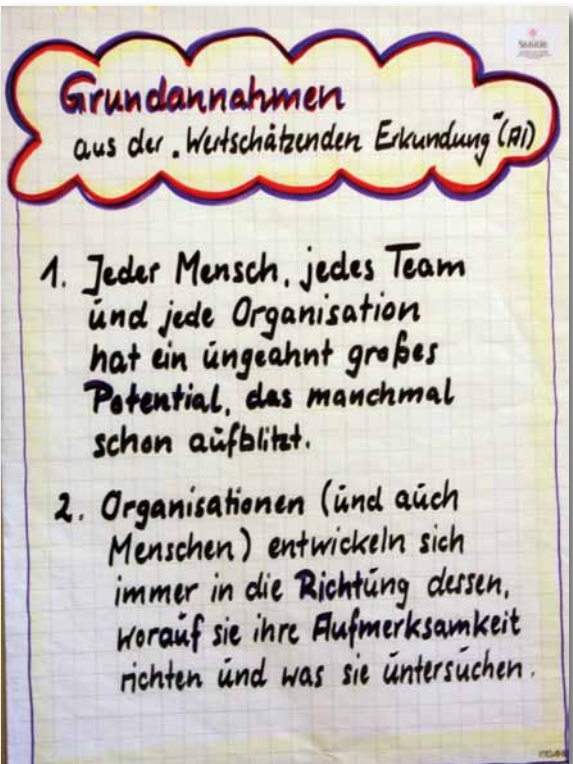 Grundannahmen
aus der „Wertschätzenden Erkundung" (AI)
1. Jeder Mensch, jedes Team
und jede Organisation
hat ein ungeahnt großes
Potential, das manchmal
schon aufblitzt.
2. Organisationen (und auch
Menschen) entwickeln sich
immer in die Richtung dessen,
worauf sie ihre Aufmerksamkeit
richten und was sie untersuchen.